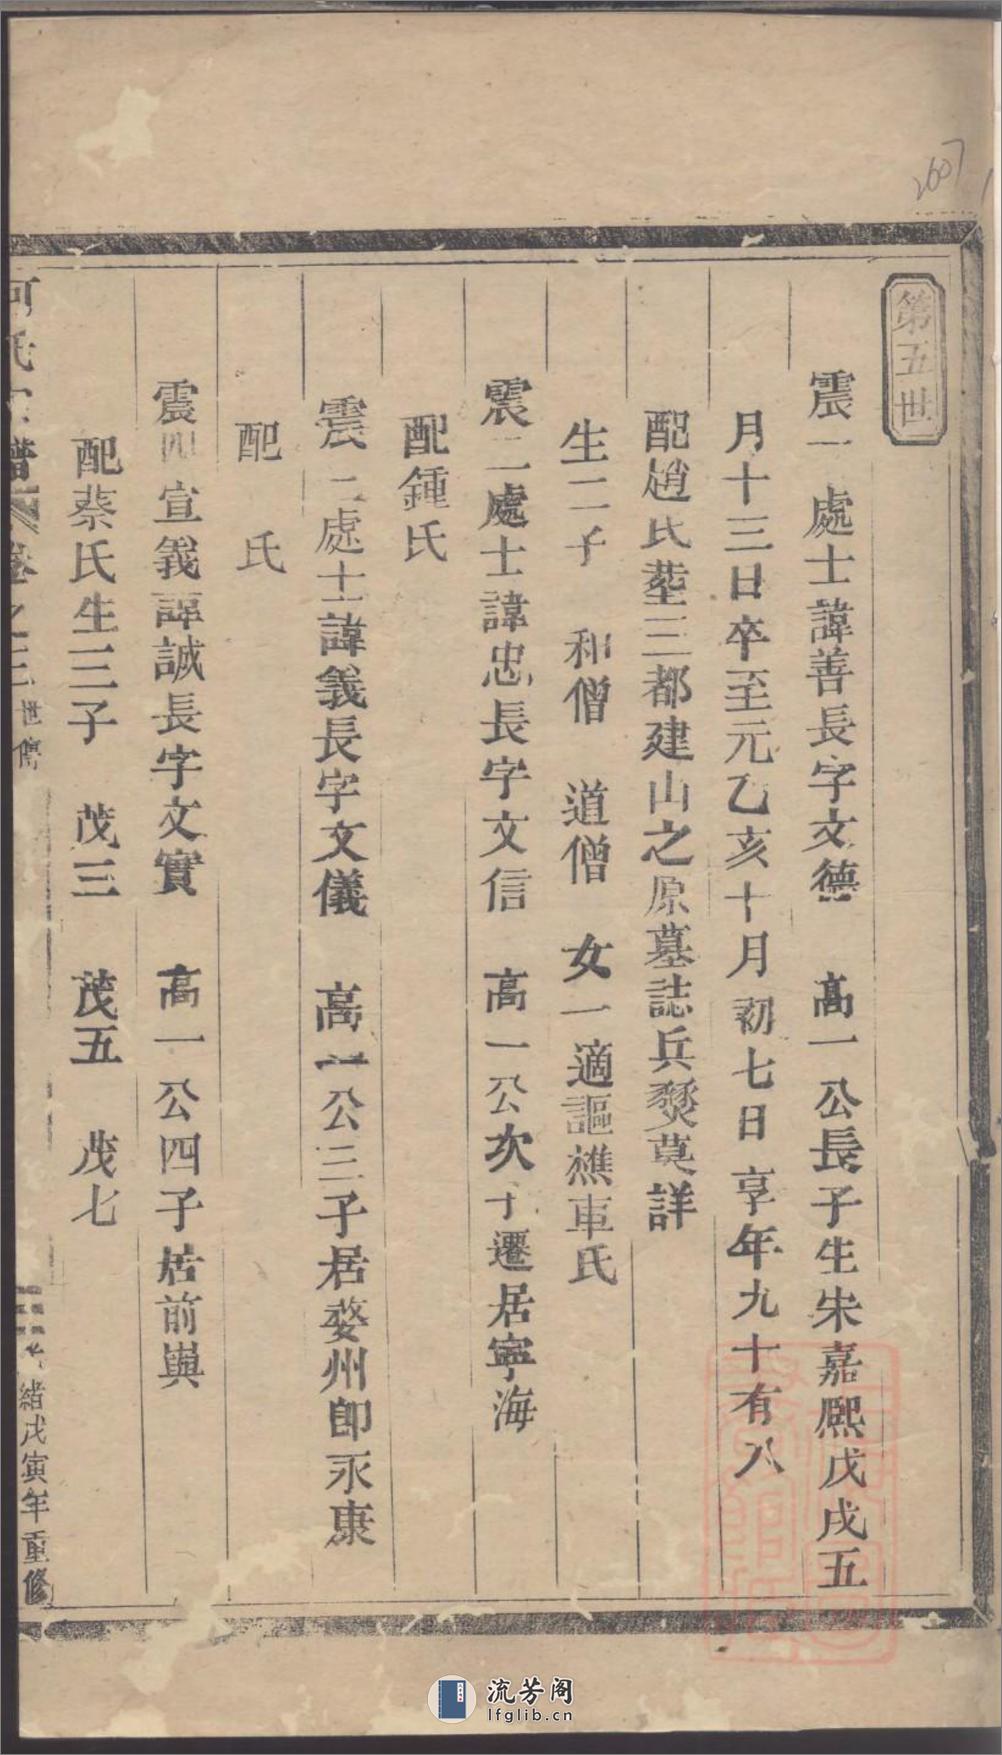 2607
第五世
震一處士諱善長字文德 高一公長子生宋嘉熙戊戌五
月十三日卒至元乙亥十月初七日享年九十有八
配趙氏塟三都建山之原墓誌兵燹莫詳
生二子 和僧 道僧 女一適謳樵車氏
震二處士諱忠長字文信 高一公次子遷居寧海
配鍾氏
震三處士諱義長字文儀 高一公三子居婺州即永康
配 氏
震四宣義諱誠長字文實 高一公四子居前與
配蔡氏生三子 茂三 茂五 茂七
何氏宗譜 卷之三 世傳 緒戊寅年重修
流芳阁
lfglib.cn